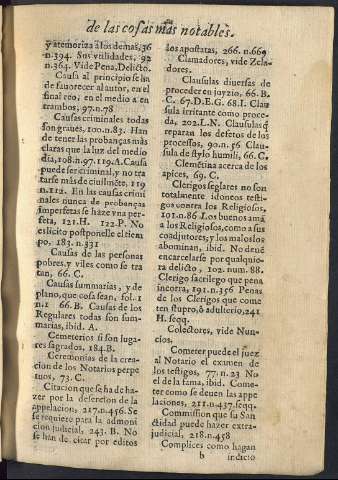 de las cosas mas notables.
y atemoriza à los demas, 36
n.394. Sus vtilidades, 92
n.364. Vide Pena, Delicto.
Causa al principio se ha
de fauorecer al autor, en el
final reo, en el medio a en
trambos, 97.n.78
Causas criminales todas
son graues, 100.n.83. Han
de tener las probanças mas
claras que la luz del medio
dia, 108.n.97. 119.A. Causa
puede ser criminal, y no tra
tarse más de ciuilmẽte, 119
n.112. En las causas crimi
nales nunca de probanças
imperfetas se haze vna per
feta, 121.H. 122.P. No
es licito postponelle el tiem
po, 183. n.331
Causas de las personas
pobres, y viles como se tra
tan, 66. C.
Causas summarias, y de
plano, que cosa sean, fol. 1
n.1 66. B. Causas de los
Regulares todas son sum-
marias, ibid. A.
Cemeterios si son luga-
res sagrados, 184.B.
Ceremonias de la crea-
cion de los Notarios perpe
tuos, 73. C.
Citacion que se ha de ha-
zer por la desercion de la
appelacion, 217.n.456. Se
se requiere para la admoni
cion judicial, 243. B. No
se han de citar por editos
los apostatas, 266. n.669
Clamadores, vide Zela-
dores.
Clausulas diuersas de
proceder en juyzio, 66. B.
C. 67. D.E.G. 68.I. Clau
sula irritante como proce-
da, 202. L.N. Clausulas q̃
reparan los defetos de los
processos, 90.n.56 Clau-
sula de stylo humili, 66. C.
Clemẽtina acerca de los
apices, 69. C.
Clerigos seglares no son
totalmente idoneos testi-
gos contra los Religiosos,
101.n.86 Los buenos amã
a los Religiosos, como a sus
coadjutores; y los malos los
abominan, ibid. No deuẽ
encarcelarse por qualquie-
ra delicto, 102. num. 88.
Clerigo sacrilego que pena
incorra, 191.n.356 Penas
de los Clerigos que come
ten stupro, ò adulterio, 241
H. seqq.
Colectores, vide Nun-
cios.
Cometer puede el juez
al Notario el examen de
los testigos, 77. n.23 No
el de la fama, ibid. Come-
ter como se deuen las appe
laciones, 211.n.437. seqq.
Commission que su San
ctidad puede hazer extra-
judicial, 218.n.458
Complices como hagan
b indicio